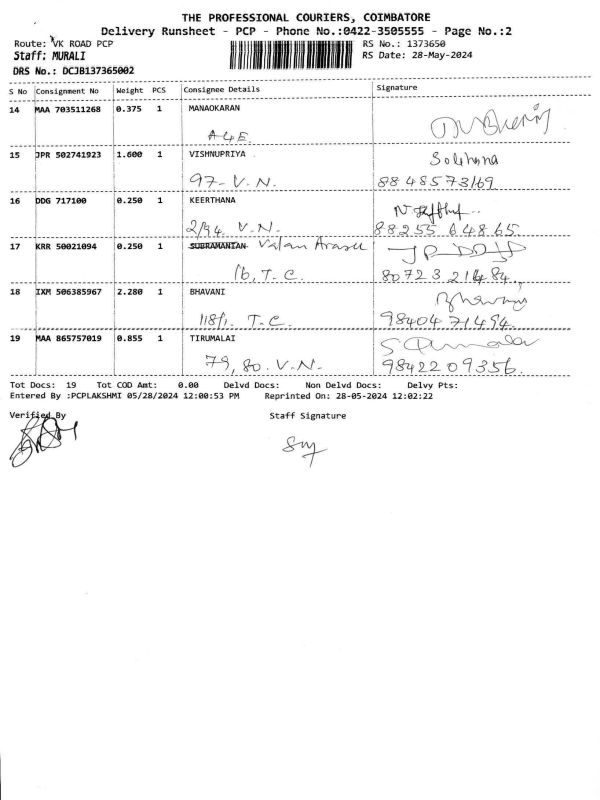 THE PROFESSIONAL COURIERS, COIMBATORE
Delivery Runsheet - PCP - Phone No.:0422-3505555 - Page No.:2
Route: VK ROAD PCP RS No.: 1373650
Staff: MURALI RS Date: 28-May-2024
DRS No.: DCJB137365002
S No Consignment No Weight PCS Consignee Details Signature
14 MAA 703511268 0.375 1 MANAOKARAN
A4E
15 JPR 502741923 1.600 1 VISHNUPRIYA
97-V.N. 8848573169
16 DDG 717100 0.250 1 KEERTHANA
2/94. V.N. 88255 64865.
17 KRR 50021094 0.250 1 SUBRAMANIAN Valan Arasu
16, T.C.
18 IXM 506385967 2.280 1 BHAVANI
118/1. T.C. 9840471494.
19 MAA 865757019 0.855 1 TIRUMALAI
79, 80. V.N. 9842209356.
Tot Docs: 19 Tot COD Amt: 0.00 Delvd Docs: Non Delvd Docs: Delvy Pts:
Entered By :PCPLAKSHMI 05/28/2024 12:00:53 PM Reprinted On: 28-05-2024 12:02:22
Verified By Staff Signature